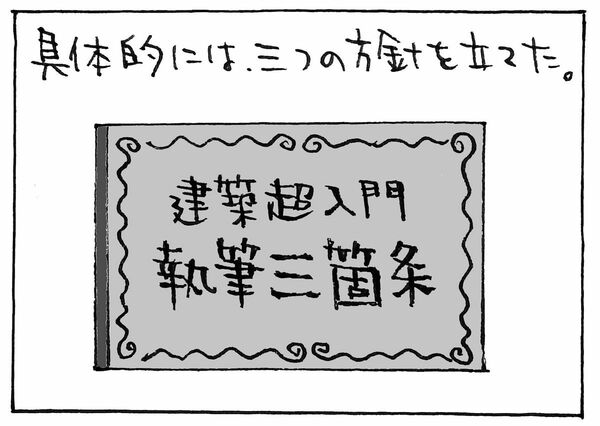 具体的には、三つの方針を立てた。
建築超入門
執筆三箇条